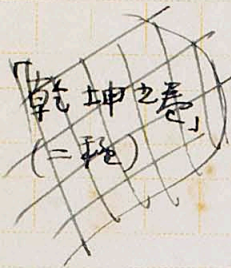 「乾坤之巻」
(二種)